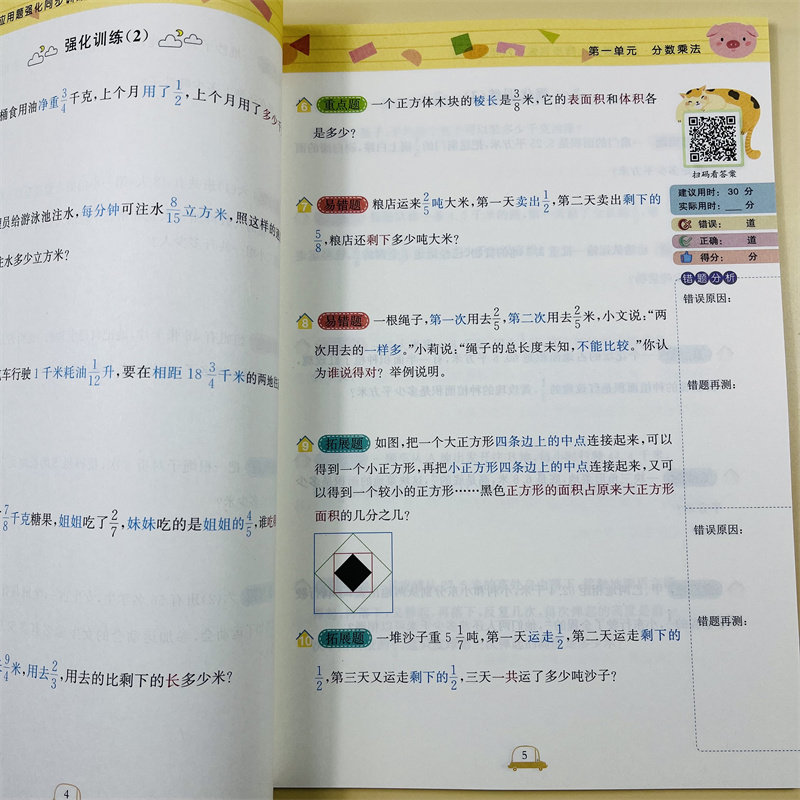 应用题强化同步训练
强化训练(2)
桶食用油净重3/4千克,上个月用了1/2,上个月用了多少千
员给游泳池注水,每分钟可注水8/15立方米,照这样的速
注水多少立方米?
汽车行驶1千米耗油1/12升,要在相距18 3/4千米的两地往
7/8千克糖果,姐姐吃了2/7,妹妹吃的是姐姐的4/5,谁吃得
9/4米,用去2/3,用去的比剩下的长多少米?
4
第一单元 分数乘法
6 重点题 一个正方体木块的棱长是3/8米,它的表面积和体积各
是多少?
7 易错题 粮店运来2/5吨大米,第一天卖出1/2,第二天卖出剩下的
5/8,粮店还剩下多少吨大米?
8 易错题 一根绳子,第一次用去2/5,第二次用去2/5米,小文说:“两
次用去的一样多。”小莉说:“绳子的总长度未知,不能比较。”你认
为谁说得对?举例说明。
9 拓展题 如图,把一个大正方形四条边上的中点连接起来,可以
得到一个小正方形,再把小正方形四条边上的中点连接起来,又可
以得到一个较小的正方形……黑色正方形的面积占原来大正方形
面积的几分之几?
10 拓展题 一堆沙子重5 1/7吨,第一天运走1/2,第二天运走剩下的
1/2,第三天又运走剩下的1/2,三天一共运了多少吨沙子?
5
扫码看答案
建议用时: 30 分
实际用时:____分
错误: 道
正确: 道
得分: 分
错题分析
错误原因:
错题再测:
错误原因:
错题再测: